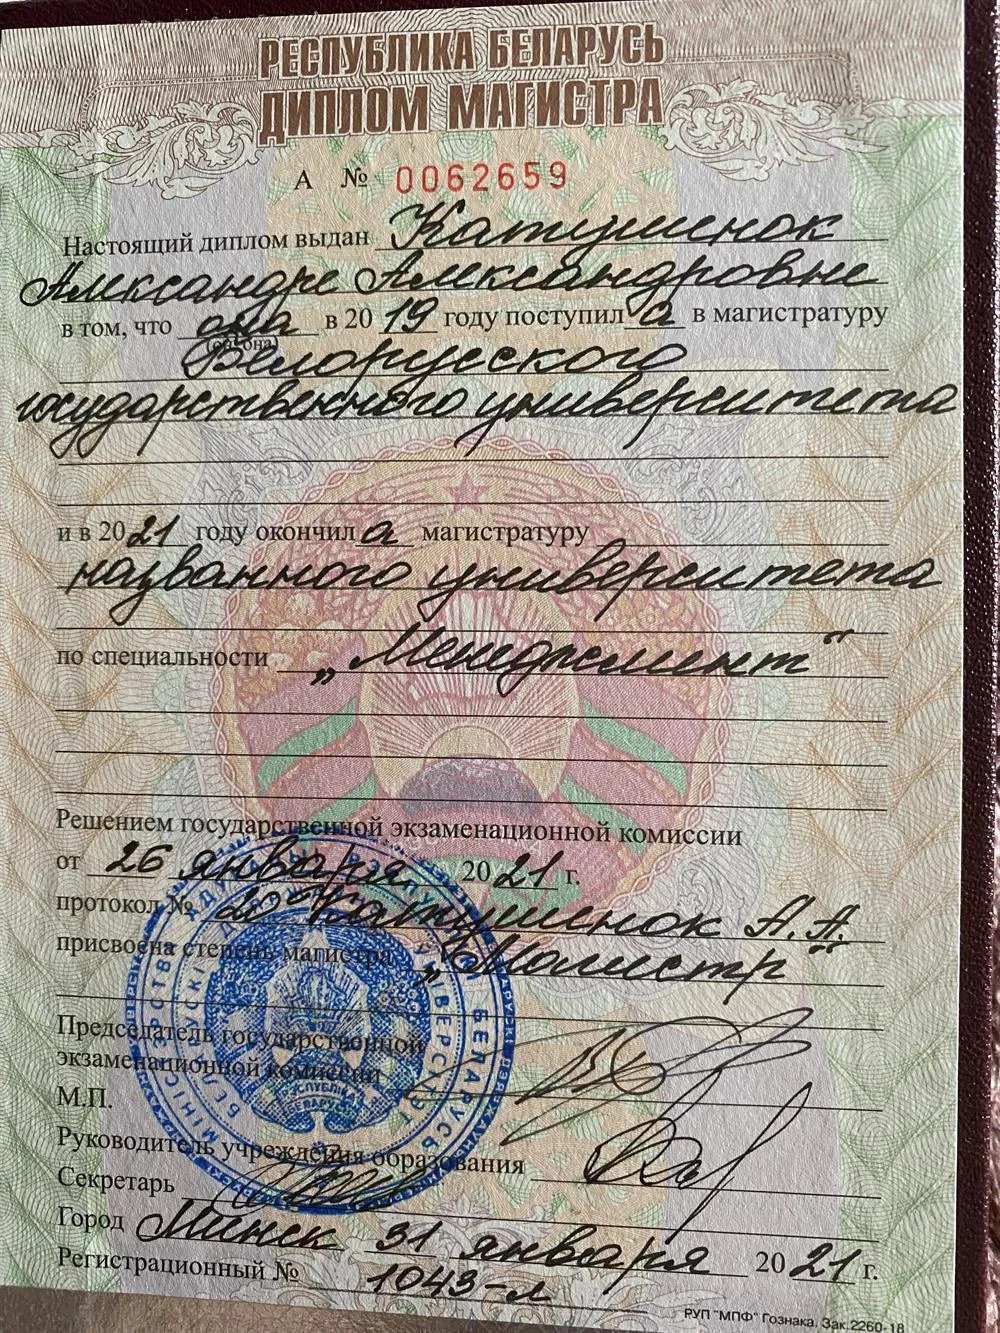 РЕСПУБЛИКА БЕЛАРУСЬ
ДИПЛОМ МАГИСТРА
А № 0062659
Настоящий диплом выдан Катушенок
Александре Александровне
в том, что она в 2019 году поступила в магистратуру
(он, она)
Белорусского
государственного университета
и в 2021 году окончила магистратуру
названного университета
по специальности „Менеджмент"
Решением государственной экзаменационной комиссии
от 26 января 2021 г.
протокол № 20 Катушенок А.А.
присвоена степень магистра „Магистр"
Председатель государственной
экзаменационной комиссии
М.П.
Руководитель учреждения образования
Секретарь
Город Минск 31 января 2021 г.
Регистрационный № 1043-л
РУП "МПФ" Гознака. Зак.2260-18
РЭСПУБЛІКА
БЕЛАРУСЬ